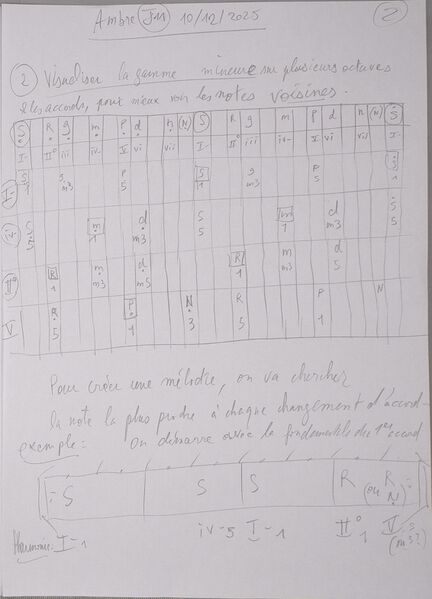 Ambre J11 10/12/2025
2
2 Visualiser la gamme mineure sur plusieurs octaves
& les accords, pour mieux voir les notes voisines.
S R g m P d n (N) S R g m P d n (N) S
I- II° iii iv- V vi vii I- II° iii iv- V vi vii I-
S g P S g P S
1 m3 5 1 m3 5 1
iv- S m d S m d S
5 1 m3 5 1 m3 5
II° R m d R m d
1 m3 m5 1 m3 5
V R P N R P N
5 1 3 5 1
Pour créer une mélodie, on va chercher
la note la plus proche à chaque changement d'accord
exemple: On démarre avec la fondamentale du 1er accord
S S S R (ou R N)
Harmonie: I-1 iv-5 I-1 II°1 V 5 (ou 3?)